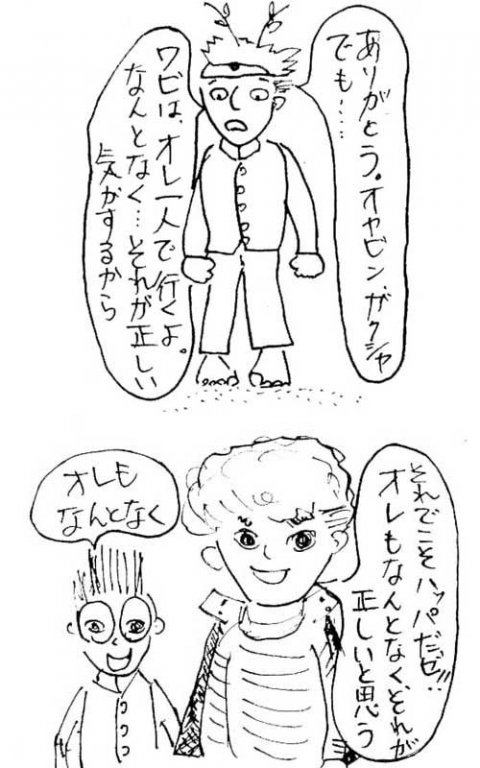 ありがとう。オヤビン、ガクシャ
でも……
ワビは、オレ一人で行くよ。
なんとなく…それが正しい
気がするから
それでこそハッパだぜ!!
オレもなんとなく、それが
正しいと思う
オレも
なんとなく